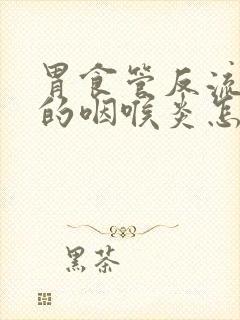 胃食管反流
的咽喉炎怎
黑茶